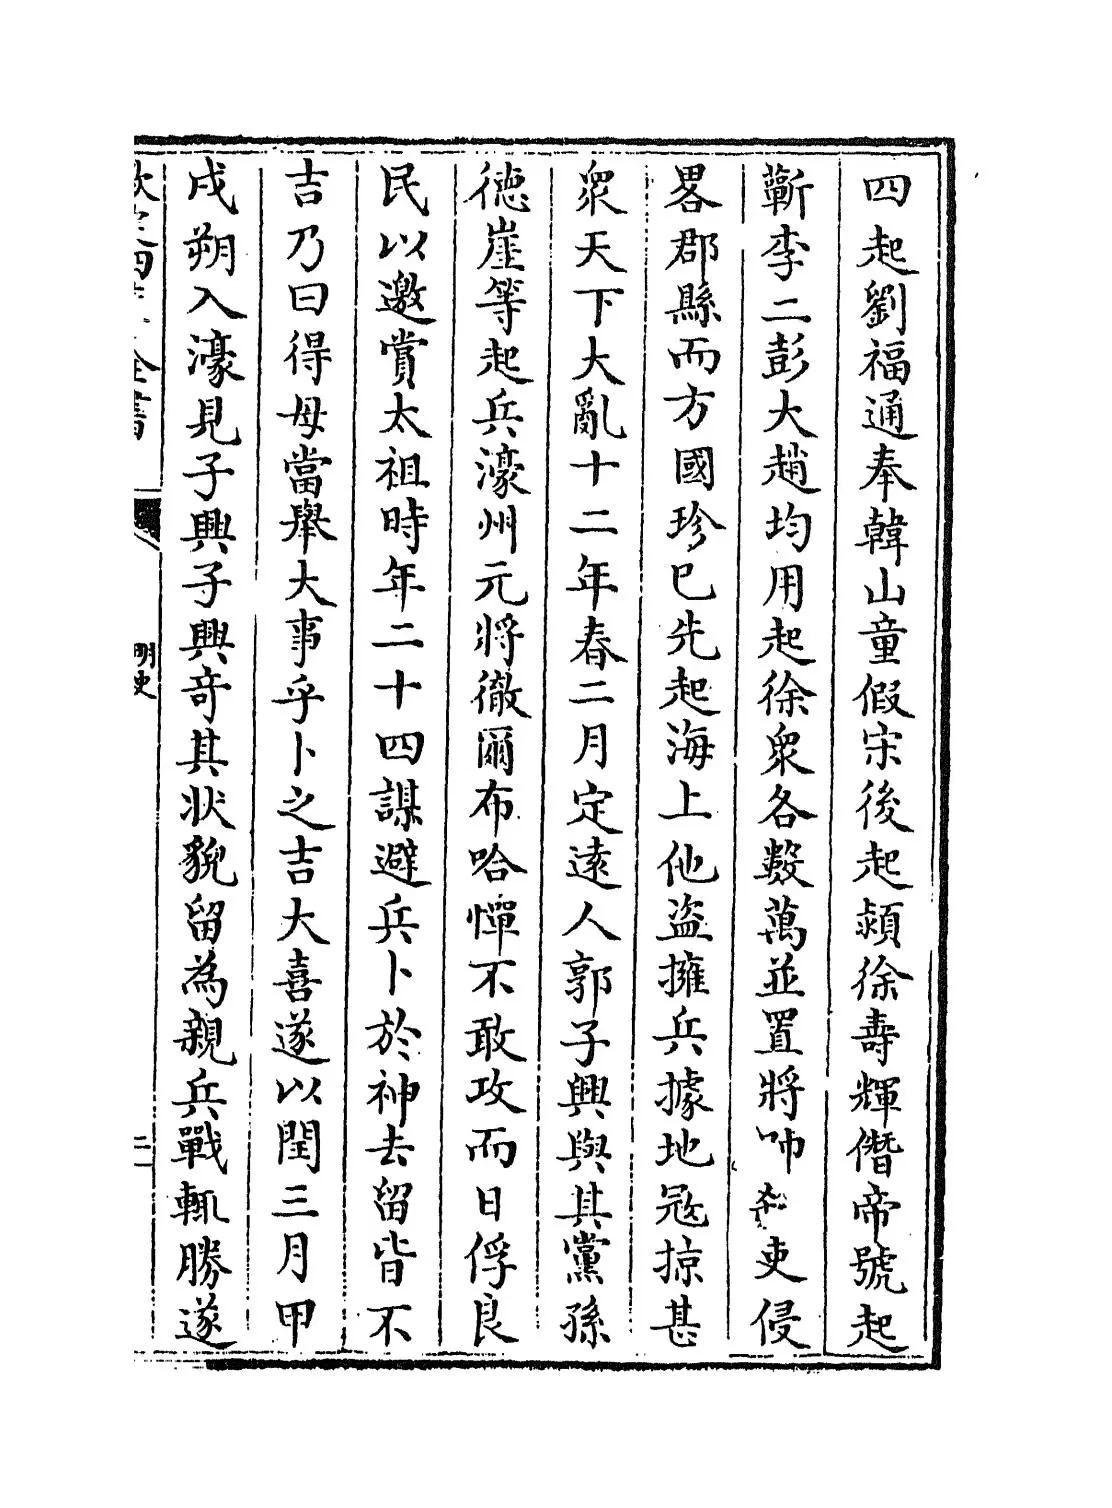 四起劉福通奉韓山童假宋後起潁徐壽輝僭帝號起
蘄李二彭大趙均用起徐衆各數萬並置將帥殺吏侵
畧郡縣而方國珍已先起海上他盜擁兵據地寇掠甚
衆天下大亂十二年春二月定遠人郭子興與其黨孫
德崖等起兵濠州元將徹爾布哈憚不敢攻而日俘良
民以邀賞太祖時年二十四謀避兵卜於神去留皆不
吉乃曰得毋當舉大事乎卜之吉大喜遂以閏三月甲
戌朔入濠見子興子興奇其状貌留為親兵戰輒勝遂
欽定四庫全書
明史
二